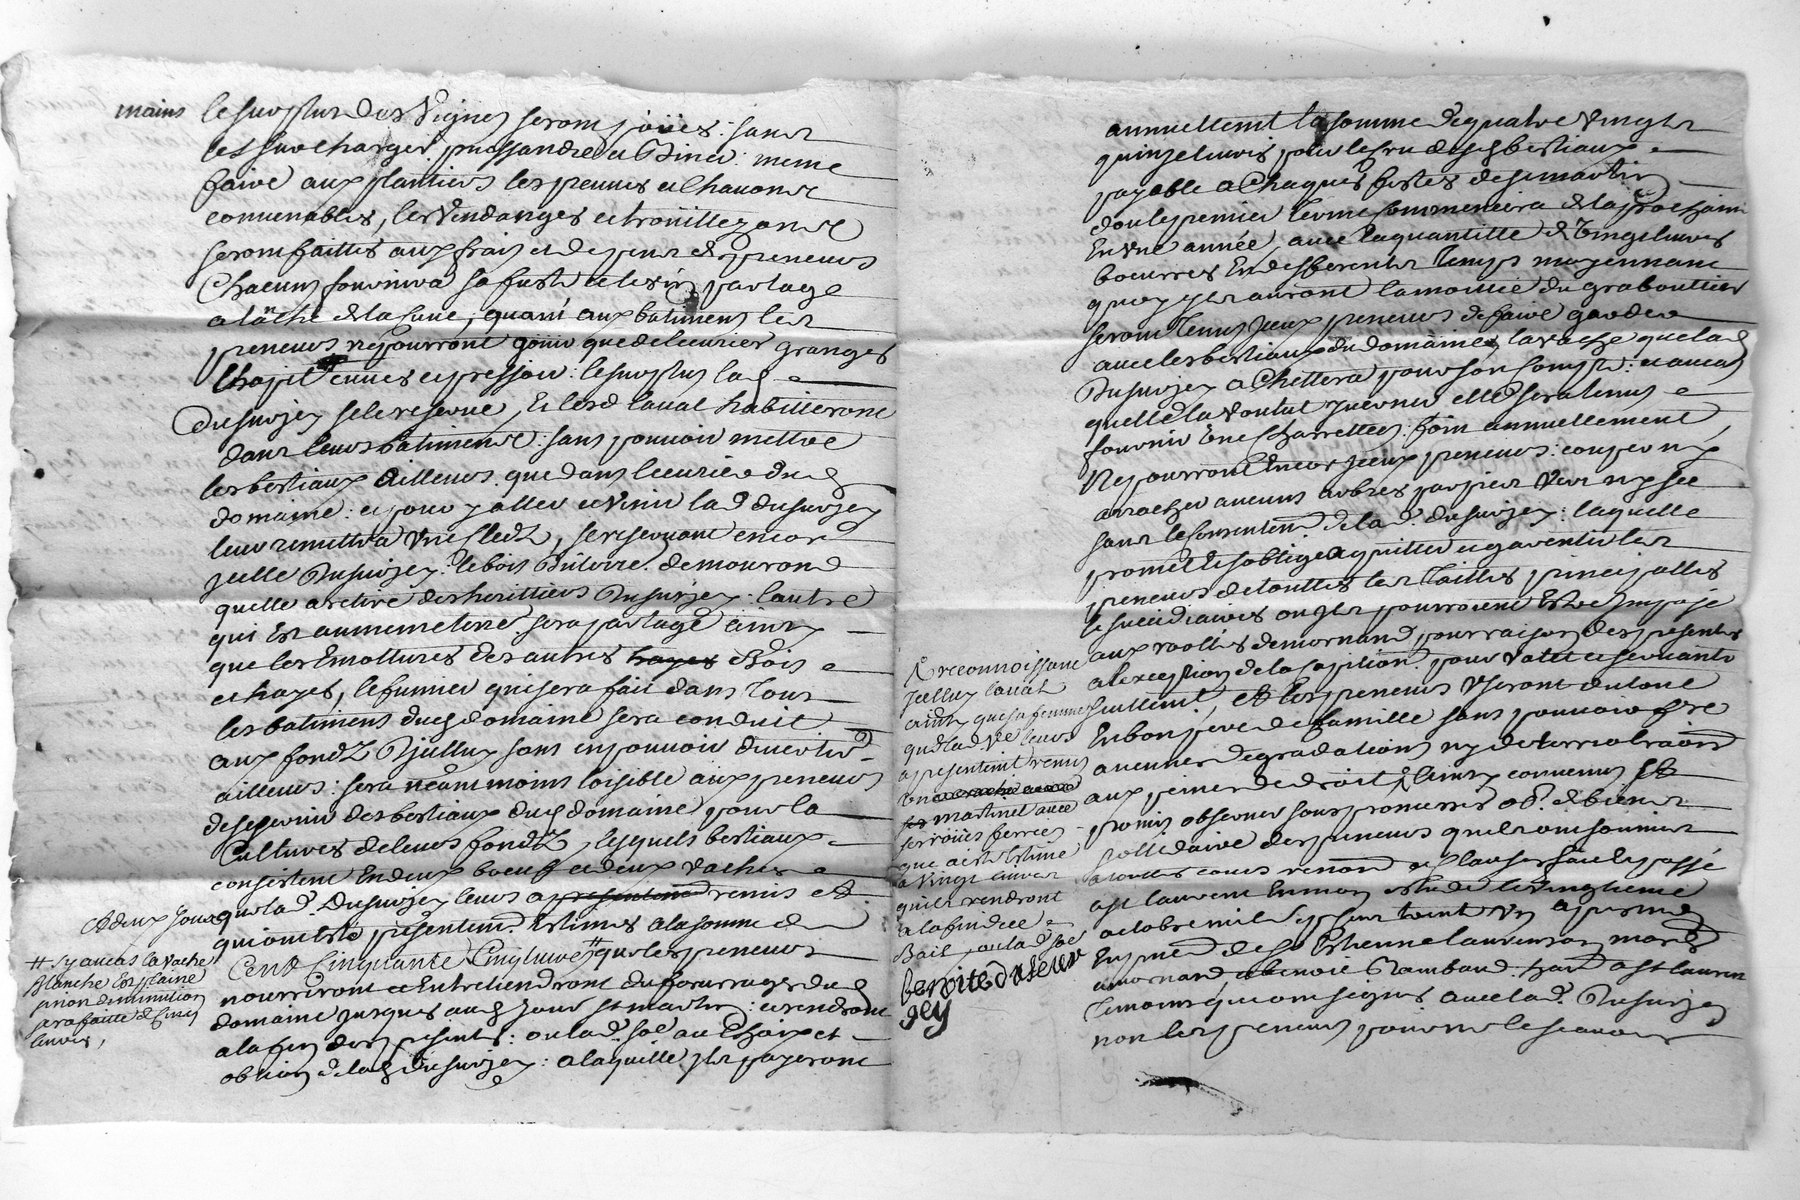 mains
le surplus des Vignes seront joüies : sans
les surcharger, puissandre et Biner : meme
faire aux plantiers les peuues et Chauons
conuenables, les Vendanges et trouillezons
seront faittes aux frais et despens des preneurs
Chacun fournira sa fuste et le vin partagé
a la tache de la Cuue, quant aux batimens les
preneurs ne pourront joüir que de lecurier granges
Chapit cuues et pressoir : le surplus lad
Dusurjey se le reserue, Et lesd laual habitteront
dans leurs batiments : sans pouuoir mettre
les bestiaux ailleurs que dans lecurie dud
domaine : et pour y aller et venir lad dusurjey
leur remettra Vne Cledz, se reseruant encor
jcelle Dusurjey : le bois de terre demourand
quelle a retiré des heritiers Dusurjey : l'autre
qui Est au meme terre sera partagé ainsy
que les Emottures des autres hayes Bois
et hayes, le fumier qui sera fait dans tous
les batimens dud domaine sera conduit
aux fondz Dicelluy sans en pouuoir diuertir
ailleurs : sera neammoins loisible aux preneurs
de se seruir des bestiaux dud domaine pour la
Cultures de leurs fondz, lesquels bestiaux
consistent En deux boeufs et deux vaches
Et deux joux
que lad. Dusurjey leurs a presentemt remis et
qui ont Esté presentemt Estimés a la somme de
Cent Cinquante Cinq liures # que les preneurs
nourriront et Entretiendront du fourrages dud
domaine jusques aud jour st martin : et rendront
a la fin des presentes : ou lad. soe au Choix et
obtion de lad Dusurjey : a laquelle jls payeront
# Sy aucas la vache
blanche Est plaine
prion deminution
sera faitte de Cinq
liures,
annuellemt la somme de quatre vingts
quinze liures pour le cru desd bestiaux
payable a Chaques festes de st martin
dont le premier terme Commencera de la prochaine
En vne année, auec la quantitté de Vingt liures
beurres En differents temps moyennant
quoy jls auront la moitié du grabouttier
seront Tenus jceux preneurs de faire garder
auec les bestiaux du domaine la vache que lad
Dusurjey achettera pour son Compte : et au cas
quelle la voulut yuerner elle sera tenue
fournir Vne Charrettée foin annuellement,
Ne pourront Encor jceux preneurs : couper ny
arracher aucuns arbres par pied Vert ny sec
sans le Consentemt de lad. dusurjey : laquelle
promet et s'oblige aquitter et garentir les
preneurs de touttes les Tailles principalles
et sucidiaires ou jls pourroient Estre Jmposé
aux rolles de mornand pour raison des presentes
a lexception de la Capition. pour valet et seruante
seullemt, Et les preneurs Vseront du tout
En bon pere de famille sans pouuoir fre
aucunes degradations ny deterriorations
aux peines de droit, Ainsy conuenus et
promis obseruer sous promesses ob. de biens
sollidaire des preneurs quils ont soumier
a touttes cours renon. et Clauses fait et passé
a st laurent En mon estude le vingtieme
octobre mil sept cent trente vn apres midy
En presce de sr Estienne laurenson mard
a mornand et benoit Rambaud hant a st laurent
Temoins qui ont signés auec lad. Dusurjey
non les preneurs pour ne le scauoir
& reconnoissant
Jcelluy laual
ainsy que sa femme
que lad Vve leurs
a presentemt remis
martinet auec
ses roües ferrées
que a esté Estimé
a Vingt liures
quils rendront
a la fin du
Bail ou lad. soe
benoite dusur
gey